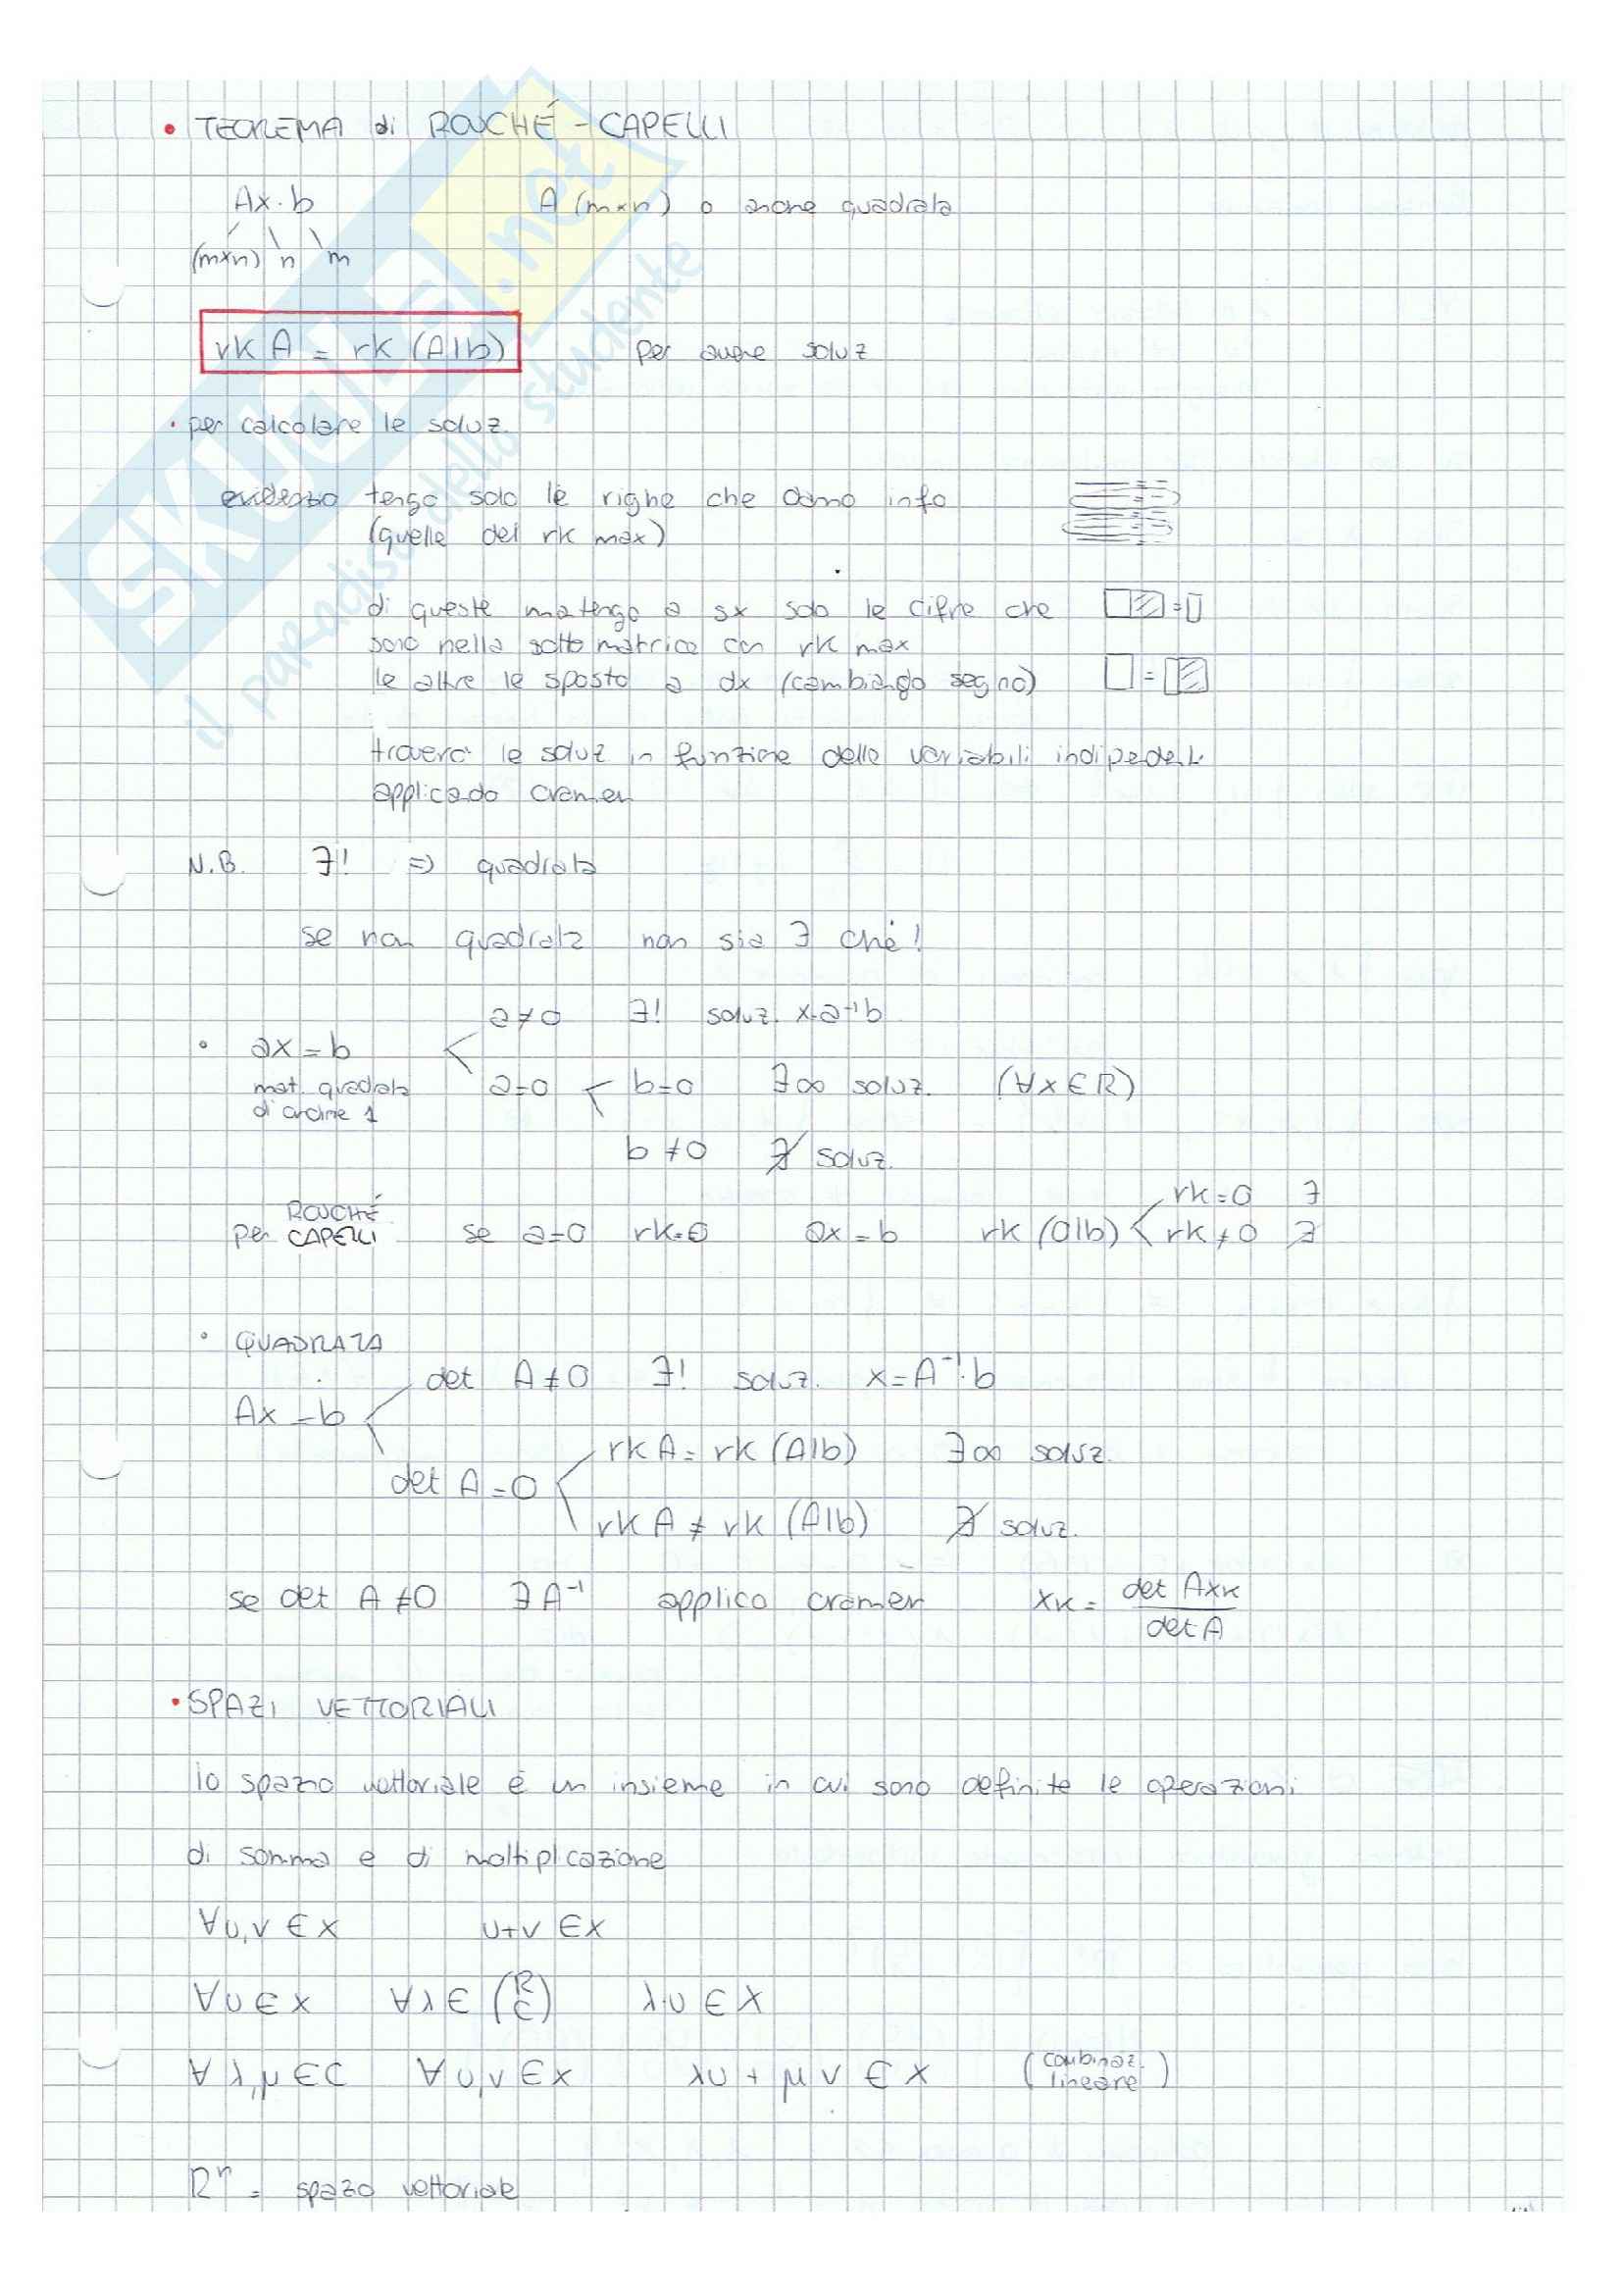 • TEOREMA di ROUCHÉ - CAPELLI
Ax = b A (m×n) o anche quadrata
(m×n) n m
rk A = rk (A|b) per avere soluz
• per calcolare le soluz.
tengo solo le righe che danno info
(quelle del rk max)
di queste mantengo a sx solo le cifre che
sono nella sottomatrice con rk max
le altre le sposto a dx (cambiando segno)
troverò le soluz in funzione delle variabili indipendenti
applicando cramer
N.B. ∃! => quadrata
se non quadrata non sia ∃ che !
a≠0 ∃! soluz. x=a⁻¹b
• ax = b
mat. quadrata a=0 b=0 ∃∞ soluz. (∀x∈R)
di ordine 1
b≠0 ∄ soluz.
per ROUCHÉ CAPELLI se a=0 rk=0 ax=b rk (0|b) rk=0 ∃
rk≠0 ∄
• QUADRATA
det A≠0 ∃! soluz. x=A⁻¹·b
Ax = b
rk A = rk (A|b) ∃∞ soluz.
det A=0
rk A ≠ rk (A|b) ∄ soluz.
se det A≠0 ∃A⁻¹ applico cramer xk = det Axk / det A
• SPAZI VETTORIALI
lo spazio vettoriale è un insieme in cui sono definite le operazioni
di somma e di moltiplicazione
∀u,v ∈ x u+v ∈ x
∀u ∈ x ∀λ ∈ (R C) λ·u ∈ x
∀ λ,μ ∈ C ∀ u,v ∈ x λu + μv ∈ x (combinaz. lineare)
Rⁿ = spazo vettoriale
SKUOLA.net
il paradiso dello studente